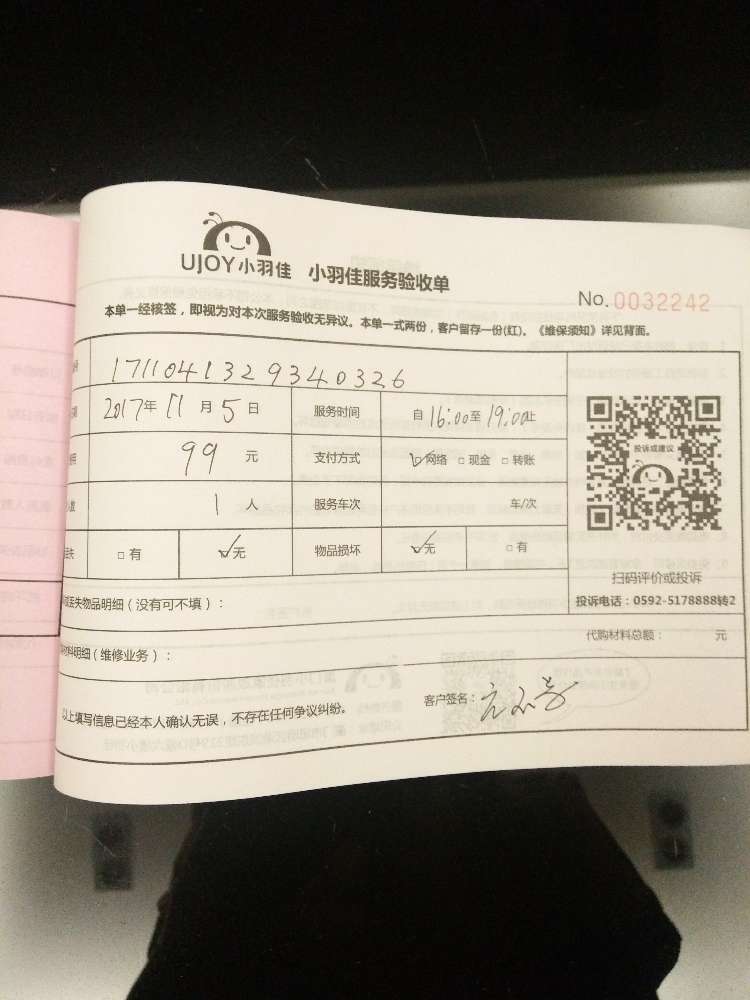 UJOY小羽佳 小羽佳服务验收单
No.0032242
本单一经核签，即视为对本次服务验收无异议。本单一式两份，客户留存一份(红)。《维保须知》详见背面。
1711041329340326
2017年 11 月 5 日 服务时间 自 16:00 至 19:00 止
99 元 支付方式 ☑网络 □ 现金 □ 转账
投诉或建议
1 人 服务车次 车/次
□ 有 ☑无 物品损坏 ☑无 □ 有
扫码评价或投诉
投诉电话：0592-5178888转2
丢失物品明细（没有可不填）：
代购材料总额： 元
材料明细（维修业务）：
以上填写信息已经本人确认无误，不存在任何争议纠纷。
客户签名：